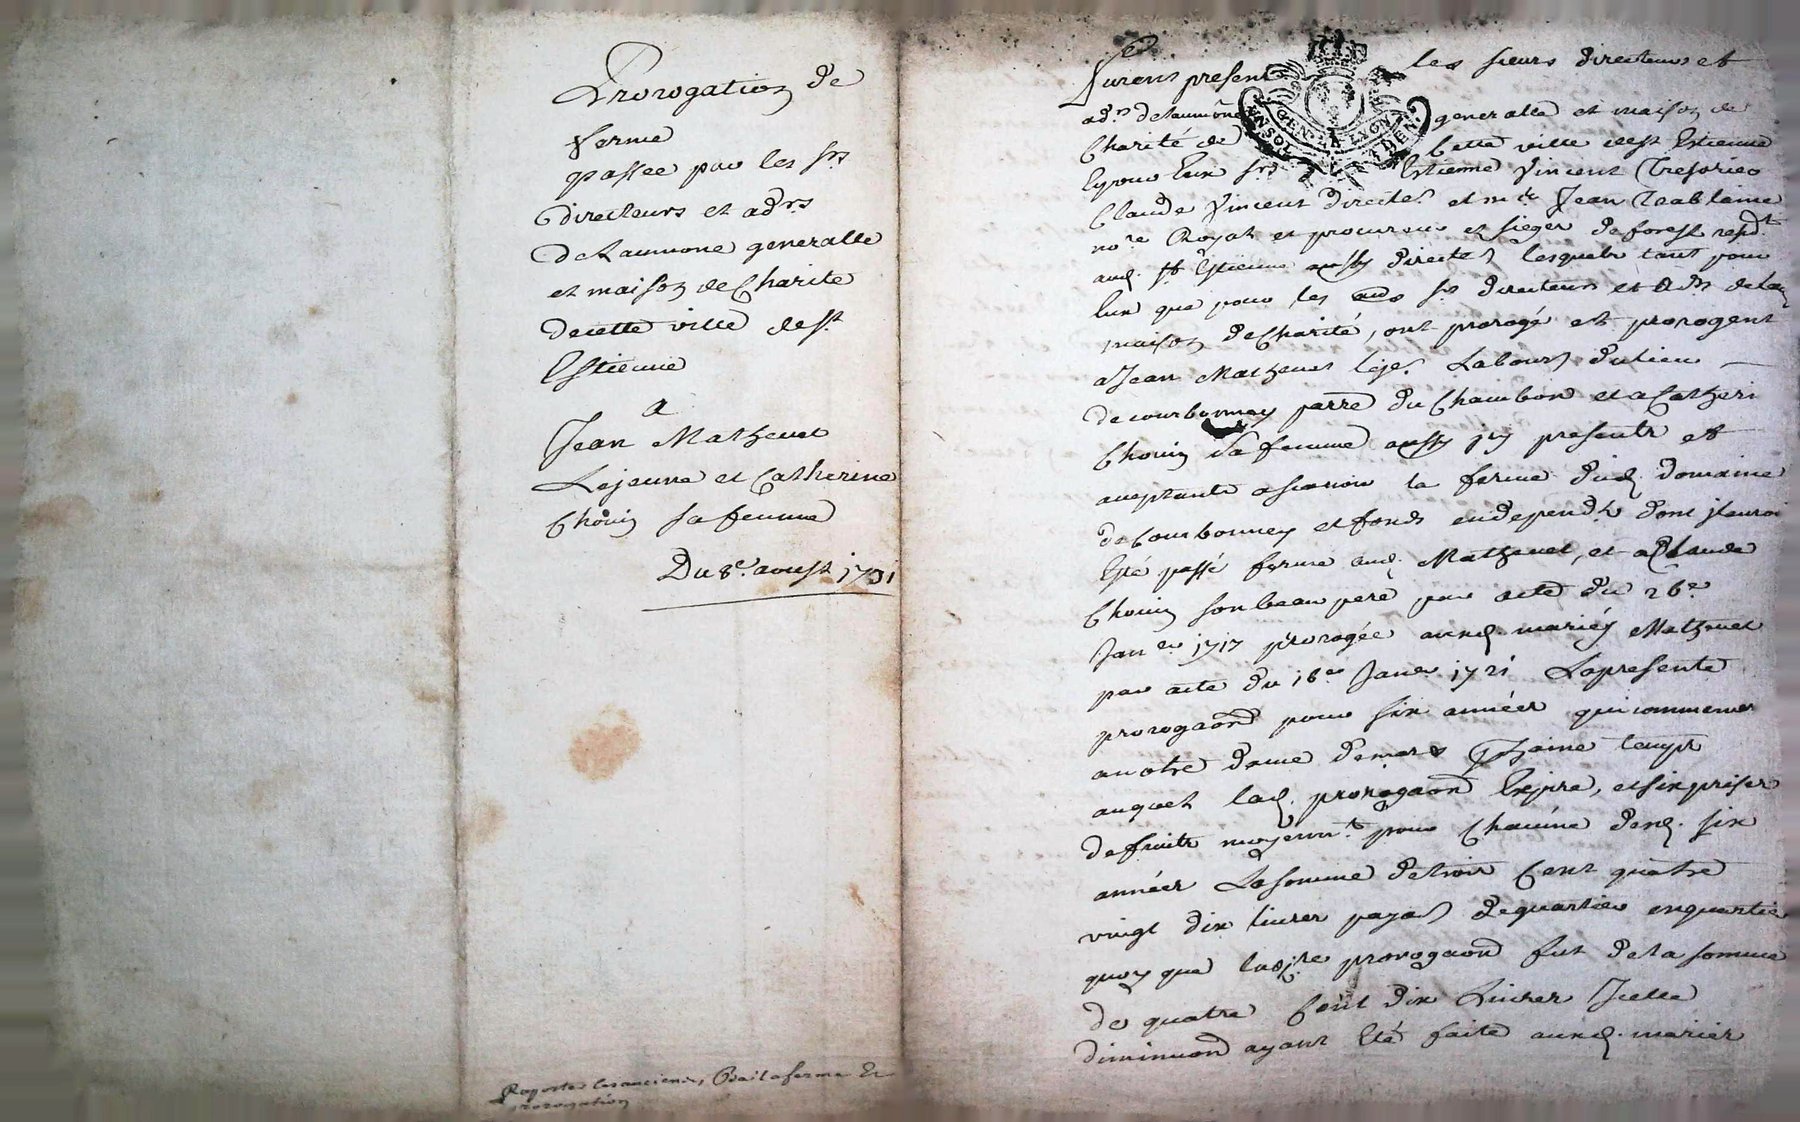 Prorogation de
ferme
passee par les srs
directeurs et adrs
de Laumone generalle
et maison de Charite
de cette ville de st
Estienne
A
Jean Mathevet
Lejeune et Catherine
Chovin sa femme
Du 8e. aoust 1731
Raporter les anciennes Bail a ferme Et
prorogation
Furent present les sieurs directeurs et
adrs de laumône generalle et maison de
Charité de cette ville de st Estienne
Estienne Vincent Tresorier
Claude Vincent directr et me Jean
nore Royal et procureur de forest
aud. st Estienne aussy directr lesquels tant pour
Eux que pour les srs directeurs et adrs de lad
maison de Charité, ont prorogé et prorogent
a Jean Mathevet leje. Labourr du lieu
de courbonney parre du Chambon et a Catheri
Chovin sa femme aussy icy presents et
acceptants la ferme dud. domaine
de Courbonney et fonds en dependts dont il auroi
Esté passé ferme aud. Mathevet, et a Claude
Chovin son beau pere par acte du 26e
Janer 1717 prorogée auxd. mariés Mathevet
par acte du 16e Janer 1721 La presente
prorogaond pour six années qui commencer
a notre dame de mars Pchaine temps
auquel lad. prorogaond Expire, et six prises
de fruits moyennt pour Chacune desd. six
années La somme de trois Cent quatre
vingt dix livres payab de quartier en quartier
quoy que lad. prorogaond fut de la somme
de quatre Cent dix Livres Icelle
diminuond ayant Eté faite auxd. mariés